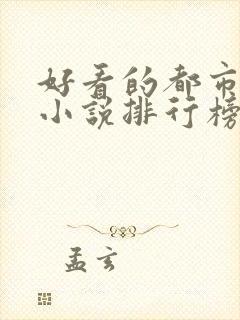 好看的都市
小说排行榜
孟玄